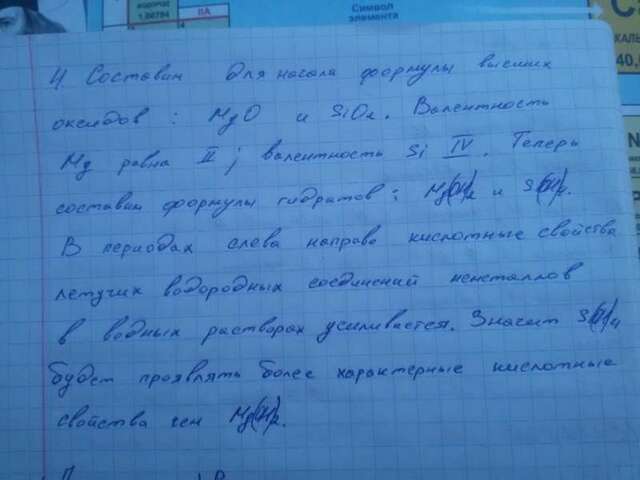 водород
1,00794
IIA
Символ
элемента
КАЛЬ
40,0
4) Составим для начала формулы высших
оксидов : MgO и SiO2. Валентность
Mg равна II ; валентность Si IV. Теперь
составим формулы гидратов : Mg(OH)2 и
В периодах слева направо кислотные свойства
летучих водородных соединений неметаллов
в водных растворах усиливается. Значит
будет проявлять более характерные кислотные
свойства чем Mg(OH)2.